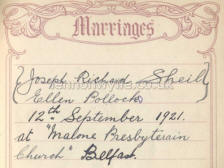 Marriages
Joseph Richard Sheil
Ellen Pollock
12th September 1921.
at "Malone Presbyterain
Church" Belfast.